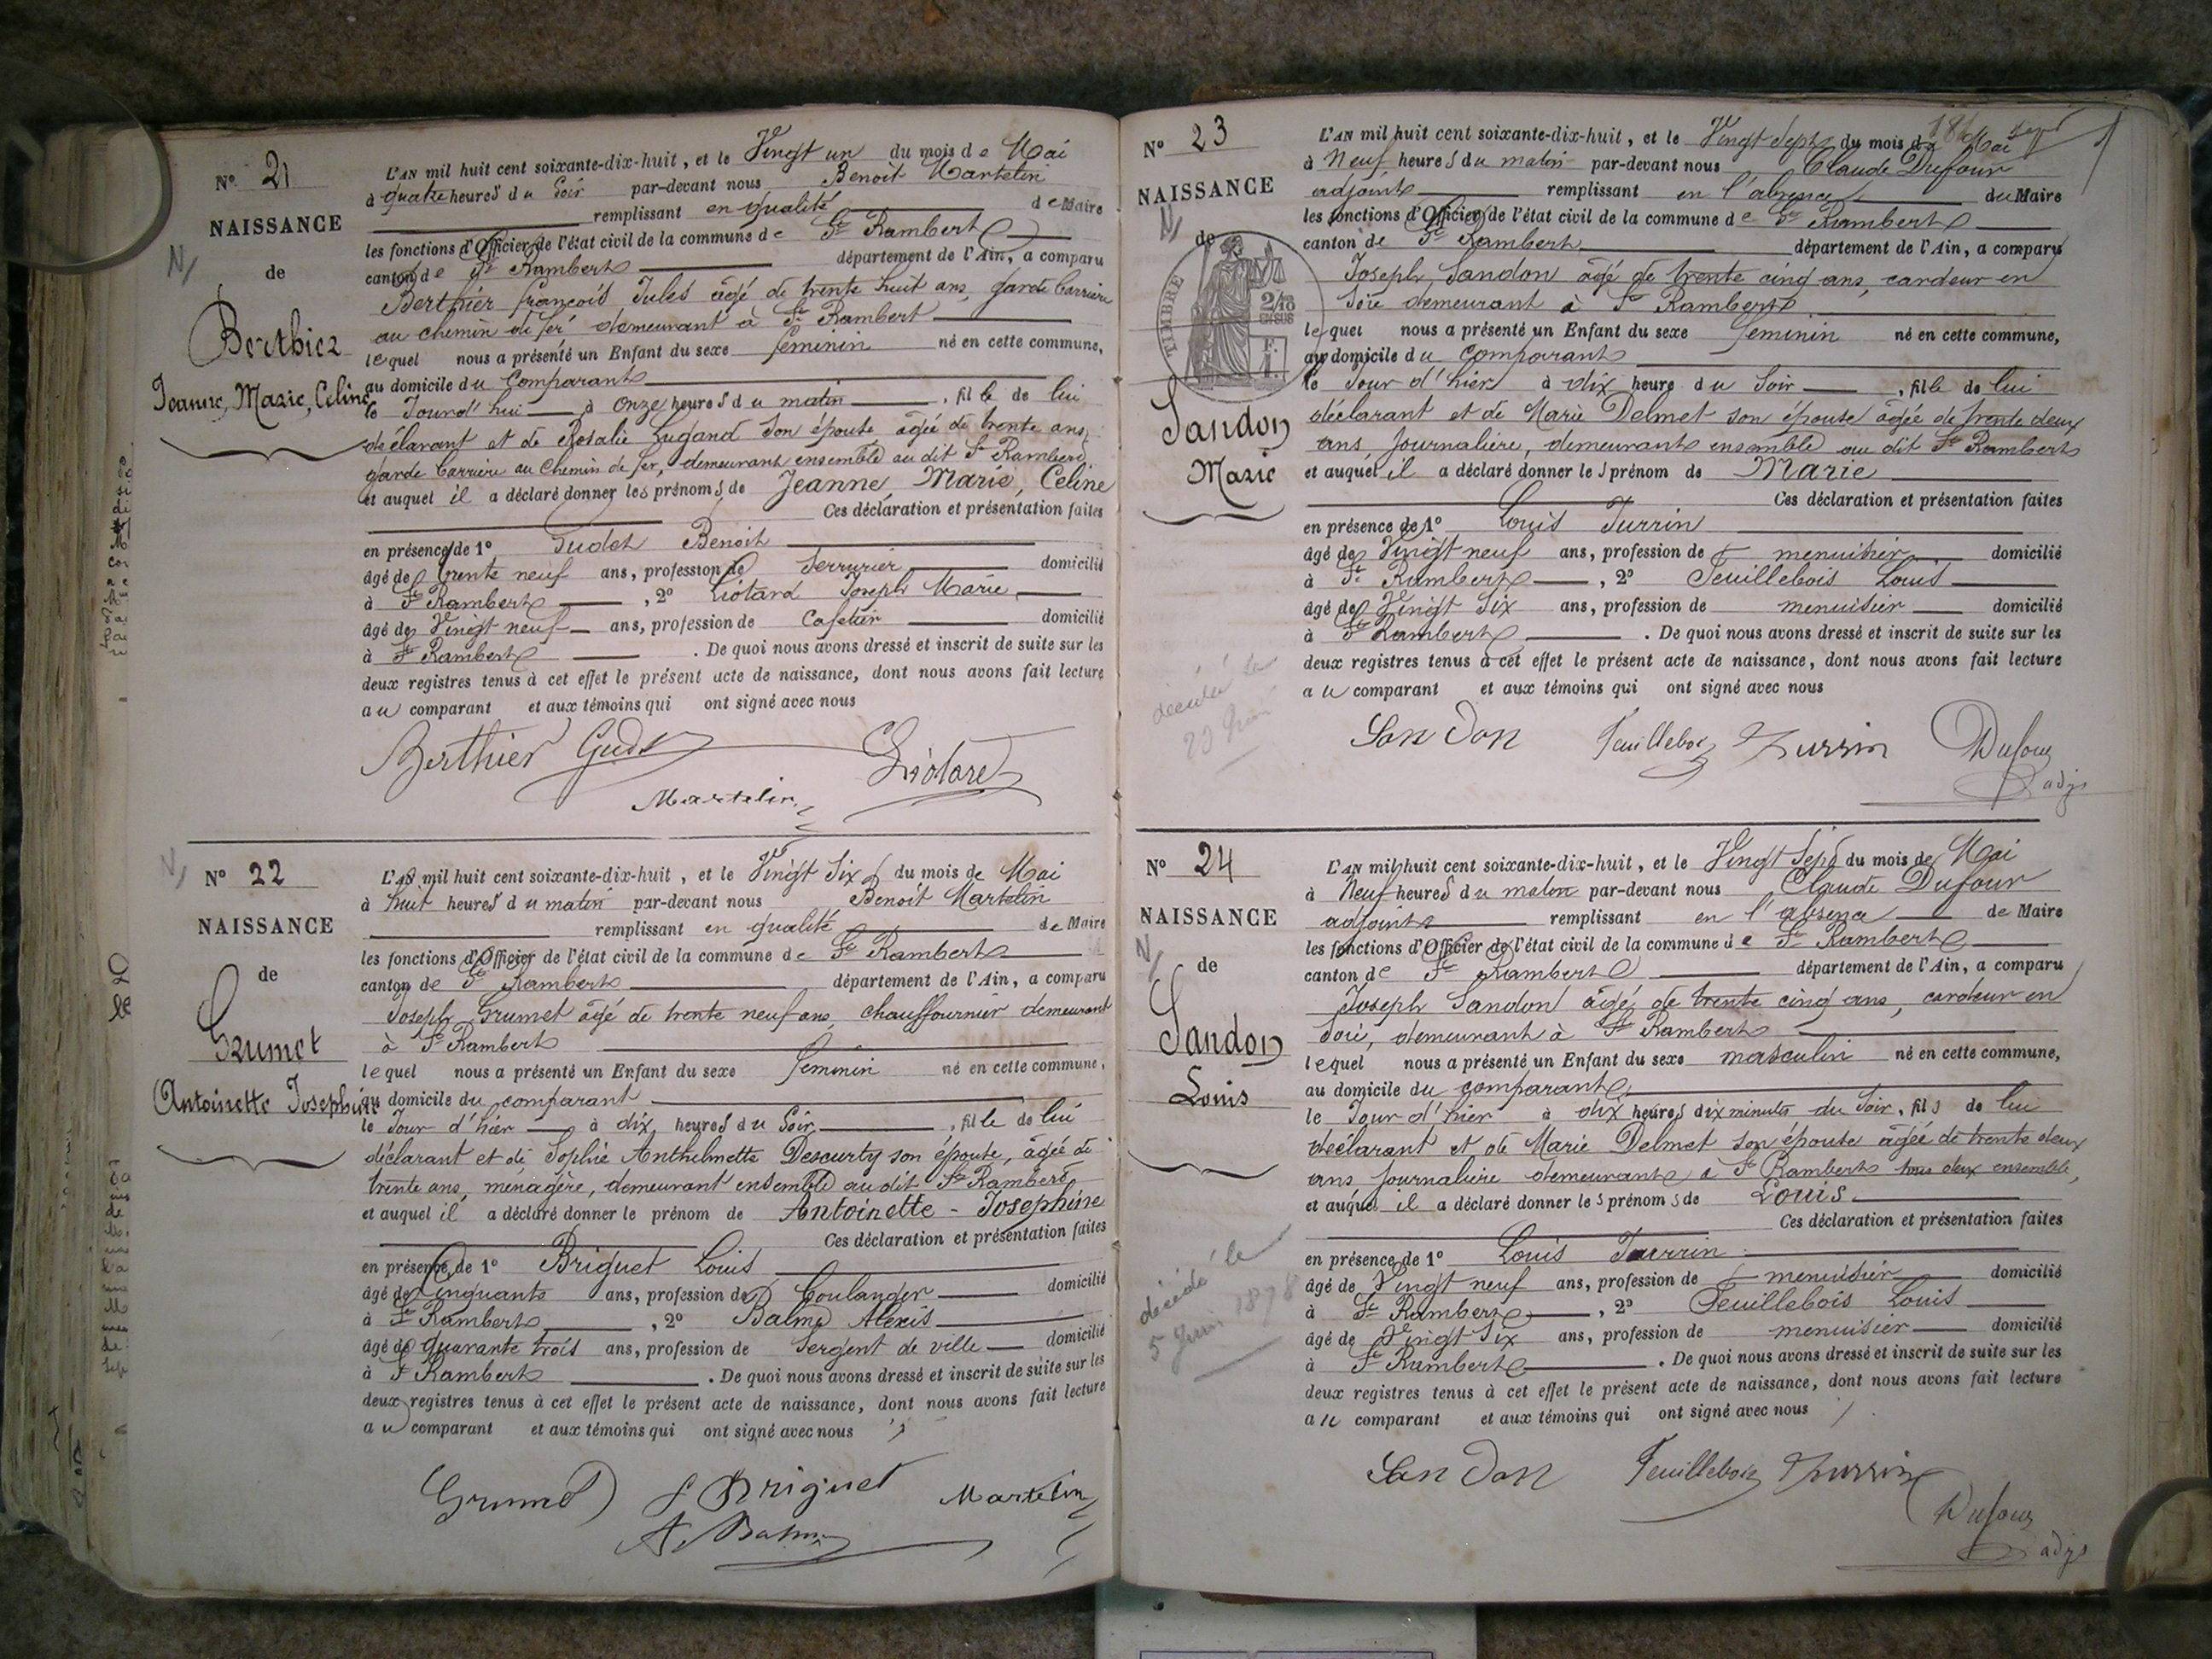 N° 21
NAISSANCE
de
Berthier
Jeanne, Marie, Céline
L'AN mil huit cent soixante-dix-huit, et le Vingt un du mois de Mai
à quatre heures du soir par-devant nous Benoit Martelin
remplissant en qualité de Maire
les fonctions d'Officier de l'état civil de la commune de St Rambert
canton de St Rambert département de l'Ain, a comparu
Berthier françois Jules âgé de trente huit ans, garde barrière
au chemin de fer demeurant à St Rambert
lequel nous a présenté un Enfant du sexe féminin né en cette commune,
au domicile du Comparant
le Jourd'hui à onze heures du matin, fille de lui
déclarant et de Rosalie Lugand son épouse âgée de trente ans,
garde barrière au Chemin de fer, demeurant ensemble au dit St Rambert
et auquel il a déclaré donner les prénoms de Jeanne, Marie, Céline
Ces déclaration et présentation faites
en présence de 1° Gudet Benoit
âgé de trente neuf ans, profession de Serrurier domicilié
à St Rambert, 2° Liotard Joseph Marie
âgé de Vingt neuf ans, profession de Cafetier domicilié
à St Rambert. De quoi nous avons dressé et inscrit de suite sur les
deux registres tenus à cet effet le présent acte de naissance, dont nous avons fait lecture
au comparant et aux témoins qui ont signé avec nous
Berthier Gudet Liotard
Martelin
N° 22
NAISSANCE
de
Grumet
Antoinette Joséphine
L'AN mil huit cent soixante-dix-huit, et le Vingt Six du mois de Mai
à huit heures du matin par-devant nous Benoit Martelin
remplissant en qualité de Maire
les fonctions d'Officier de l'état civil de la commune de St Rambert
canton de St Rambert département de l'Ain, a comparu
Joseph Grumet âgé de trente neuf ans, chauffournier demeurant
à St Rambert
lequel nous a présenté un Enfant du sexe féminin né en cette commune,
au domicile du comparant
le Jour d'hier à dix heures du Soir, fille de lui
déclarant et de Sophie Anthelmette Descurty son épouse, âgée de
trente ans, ménagère, demeurant ensemble au dit St Rambert
et auquel il a déclaré donner le prénom de Antoinette - Joséphine
Ces déclaration et présentation faites
en présence de 1° Briguet Louis
âgé de Cinquante ans, profession de boulanger domicilié
à St Rambert, 2° Balme Alexis
âgé de quarante trois ans, profession de Sergent de ville domicilié
à St Rambert. De quoi nous avons dressé et inscrit de suite sur les
deux registres tenus à cet effet le présent acte de naissance, dont nous avons fait lecture
au comparant et aux témoins qui ont signé avec nous
Grumet L Briguet Martelin
A. Balme
N° 23
NAISSANCE
de
TIMBRE
2/10 EN SUS
Sandon
Marie
L'AN mil huit cent soixante-dix-huit, et le Vingt Sept du mois de Mai
à Neuf heures du matin par-devant nous Claude Dufour
adjoint remplissant en l'absence du Maire
les fonctions d'Officier de l'état civil de la commune de St Rambert
canton de St Rambert département de l'Ain, a comparu
Joseph Sandon âgé de trente cinq ans, cardeur en
Soie demeurant à St Rambert
lequel nous a présenté un Enfant du sexe féminin né en cette commune,
au domicile du comparant
le Jour d'hier à dix heure du Soir, fille de lui
déclarant et de Marie Delmet son épouse âgée de trente deux
ans, Journalière, demeurant ensemble au dit St Rambert
et auquel il a déclaré donner les prénom de Marie
Ces déclaration et présentation faites
en présence de 1° Louis Turrin
âgé de Vingt neuf ans, profession de menuisier domicilié
à St Rambert, 2° Feuillebois Louis
âgé de Vingt Six ans, profession de menuisier domicilié
à St Rambert. De quoi nous avons dressé et inscrit de suite sur les
deux registres tenus à cet effet le présent acte de naissance, dont nous avons fait lecture
au comparant et aux témoins qui ont signé avec nous
décédée le
San Don Feuillebois Turrin Dufour
adjt
N° 24
NAISSANCE
de
Sandon
Louis
L'AN mil huit cent soixante-dix-huit, et le Vingt Sept du mois de Mai
à Neuf heures du matin par-devant nous Claude Dufour
adjoint remplissant en l'absence de Maire
les fonctions d'Officier de l'état civil de la commune de St Rambert
canton de St Rambert département de l'Ain, a comparu
Joseph Sandon âgé de trente cinq ans, cardeur en
Soie, demeurant à St Rambert
lequel nous a présenté un Enfant du sexe masculin né en cette commune,
au domicile du comparant
le Jour d'hier à dix heures dix minutes du Soir, fils de lui
déclarant et de Marie Delmet son épouse âgée de trente deux
ans Journalière demeurant à St Rambert tous deux ensemble,
et auquel il a déclaré donner les prénoms de Louis
Ces déclaration et présentation faites
en présence de 1° Louis Turrin
âgé de Vingt neuf ans, profession de menuisier domicilié
à St Rambert, 2° Feuillebois Louis
âgé de Vingt Six ans, profession de menuisier domicilié
à St Rambert. De quoi nous avons dressé et inscrit de suite sur les
deux registres tenus à cet effet le présent acte de naissance, dont nous avons fait lecture
au comparant et aux témoins qui ont signé avec nous
décédé le
5 Juin 1878
San Don Feuillebois Turrin
Dufour
adjt